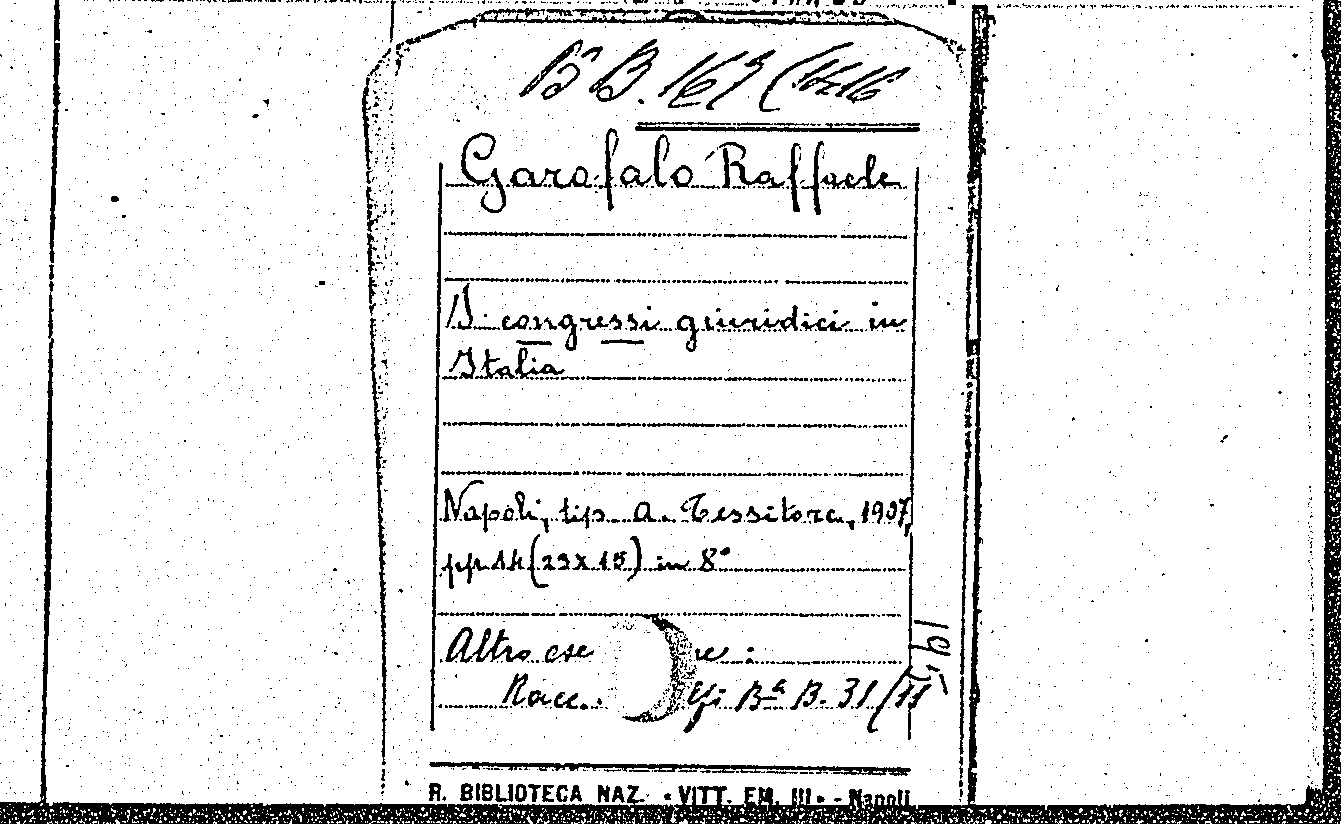 Bª B. 167 (14-16
Garofalo Raffaele
I congressi giuridici in
Italia
Napoli, tip. A. Tessitore, 1907,
pp. 14 (23 x 15) in 8°
Altro ese re :
Racc. Bª B. 31 (11
R. BIBLIOTECA NAZ. «VITT. EM. III» - Napoli